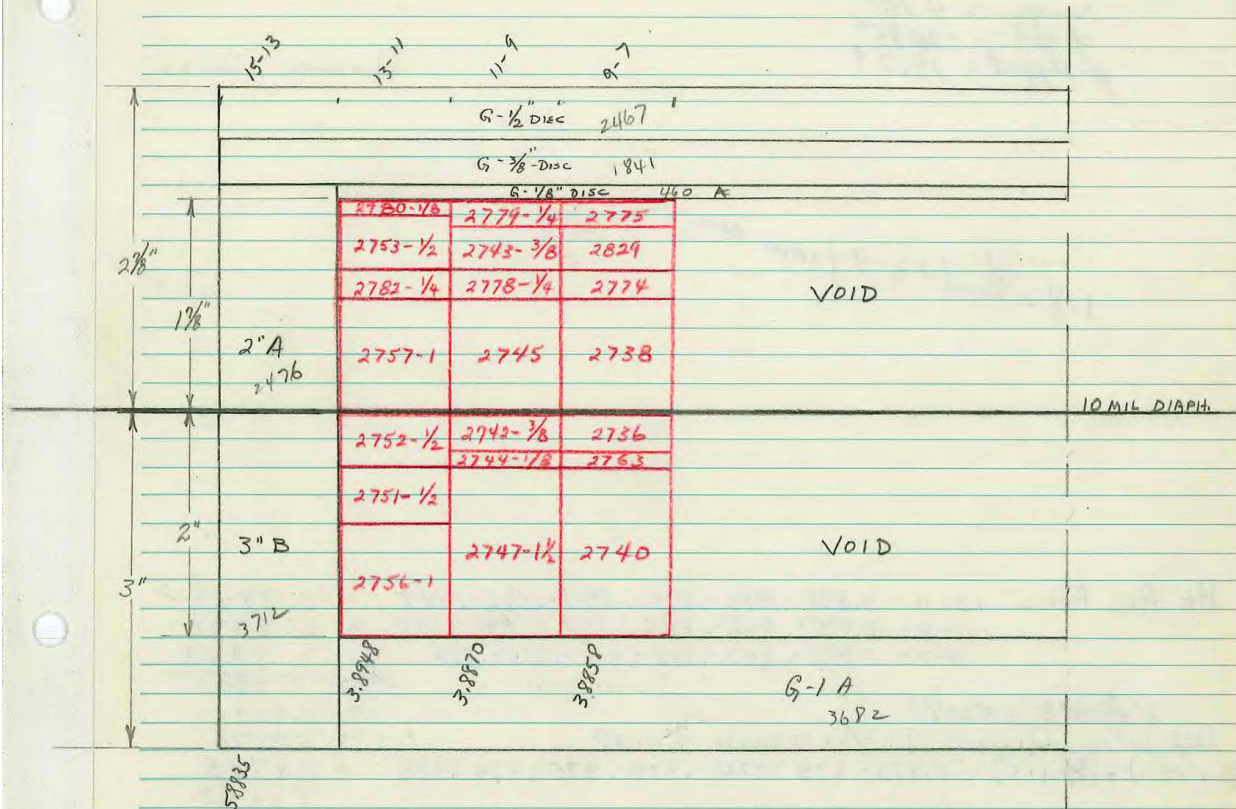 15-13 13-11 11-9 9-7
G-1/2" DISC 2467
G-3/8"-DISC 1841
G-1/8" DISC 460 A
2780-1/8 2779-1/4 2775
2753-1/2 2743-3/8 2829
2782-1/4 2778-1/4 2774
2 7/8"
VOID
1 7/8"
2"A
2757-1 2745 2738
2476
10 MIL DIAPH.
2752-1/2 2742-3/8 2736
2744-1/8 2763
2751-1/2
2"
3"B
2747-1 1/2 2740
VOID
3"
2756-1
3712
3.8948 3.8870 3.8858
G-1 A
3682
58835